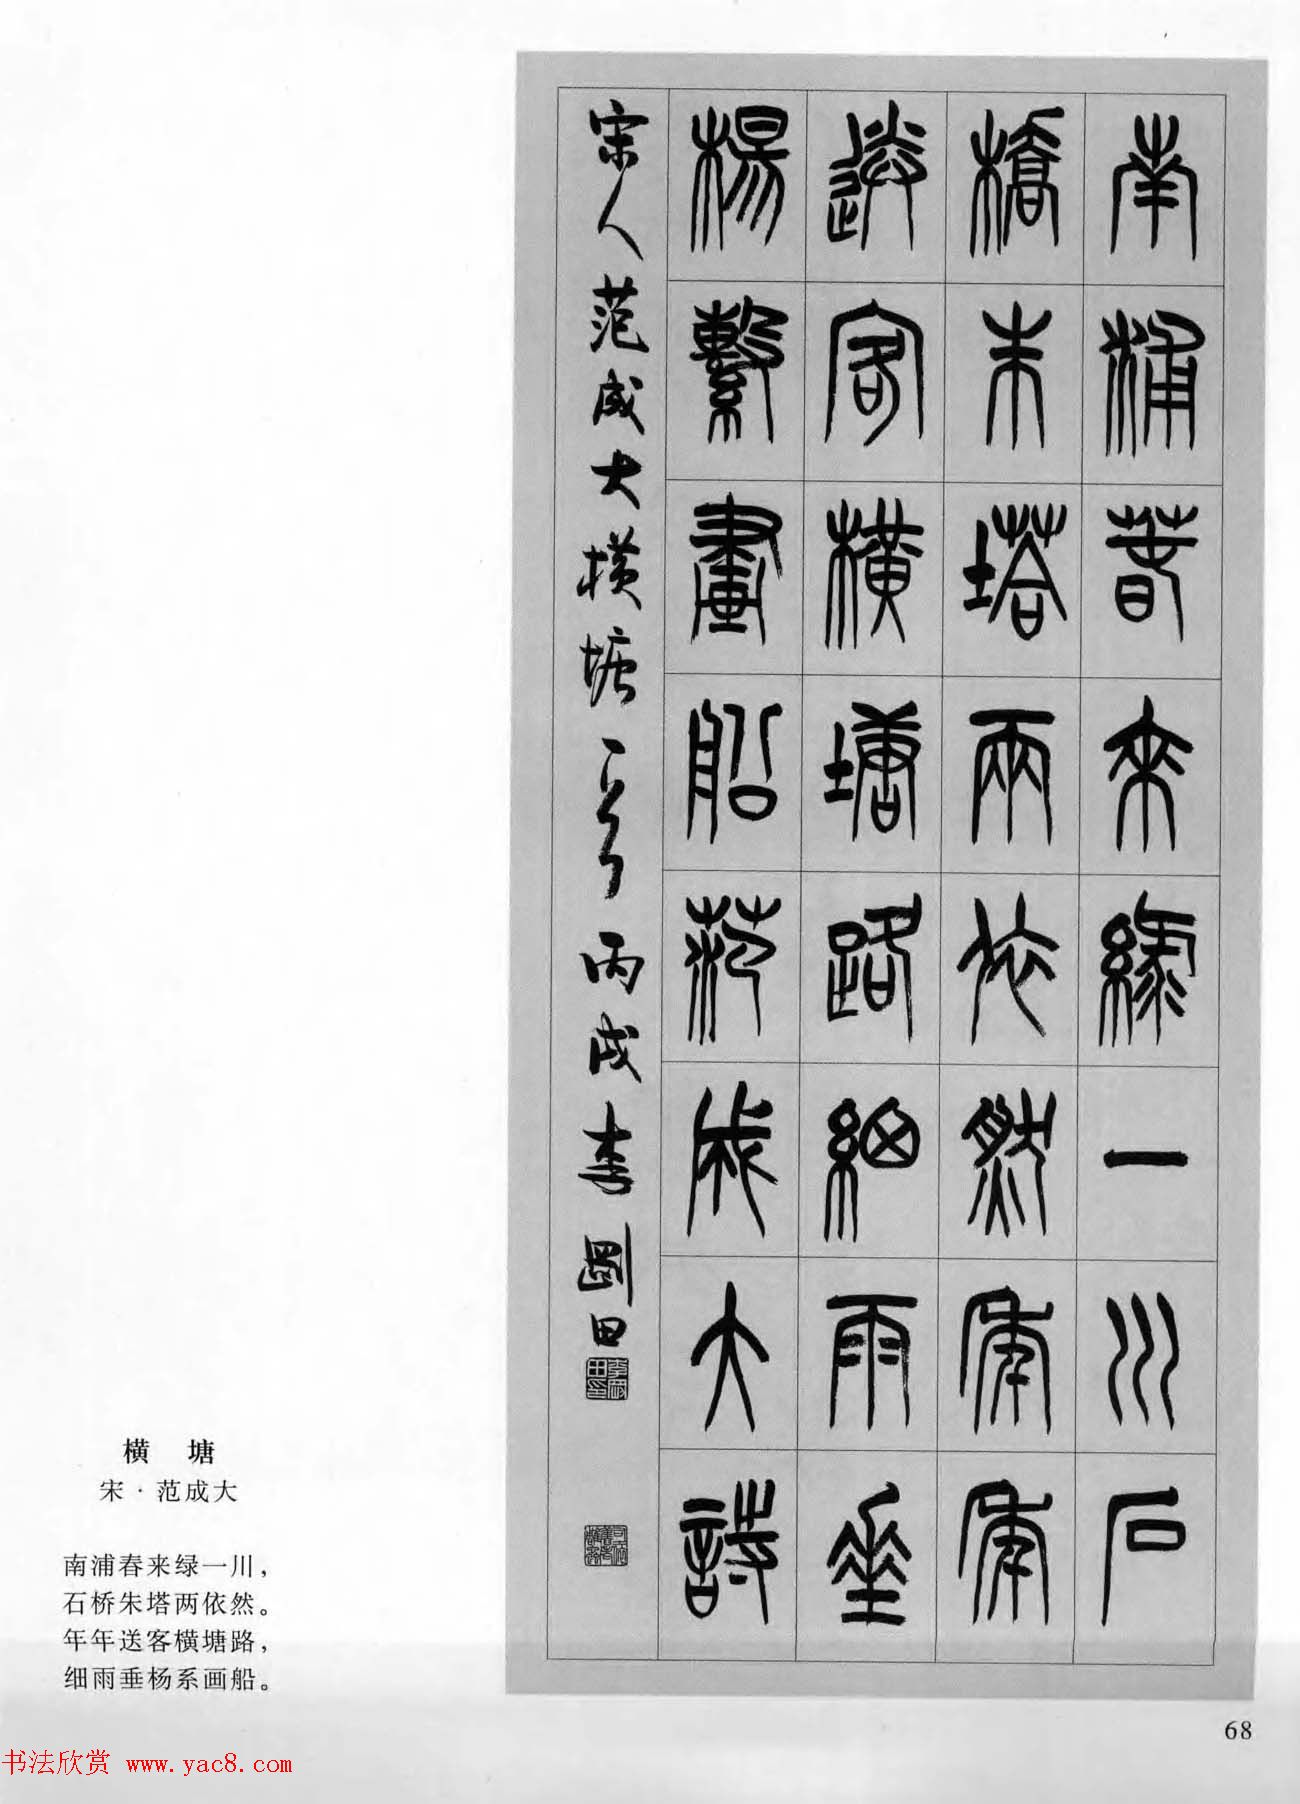 南浦春来綠一川石
橋朱塔兩依然年年
送客横塘路細雨垂
楊繫畫船范成大詩
宋人范成大横塘一首丙戌李剛田
横 塘
宋·范成大
南浦春来绿一川，
石桥朱塔两依然。
年年送客横塘路，
细雨垂杨系画船。
68
书法欣赏 www.yac8.com